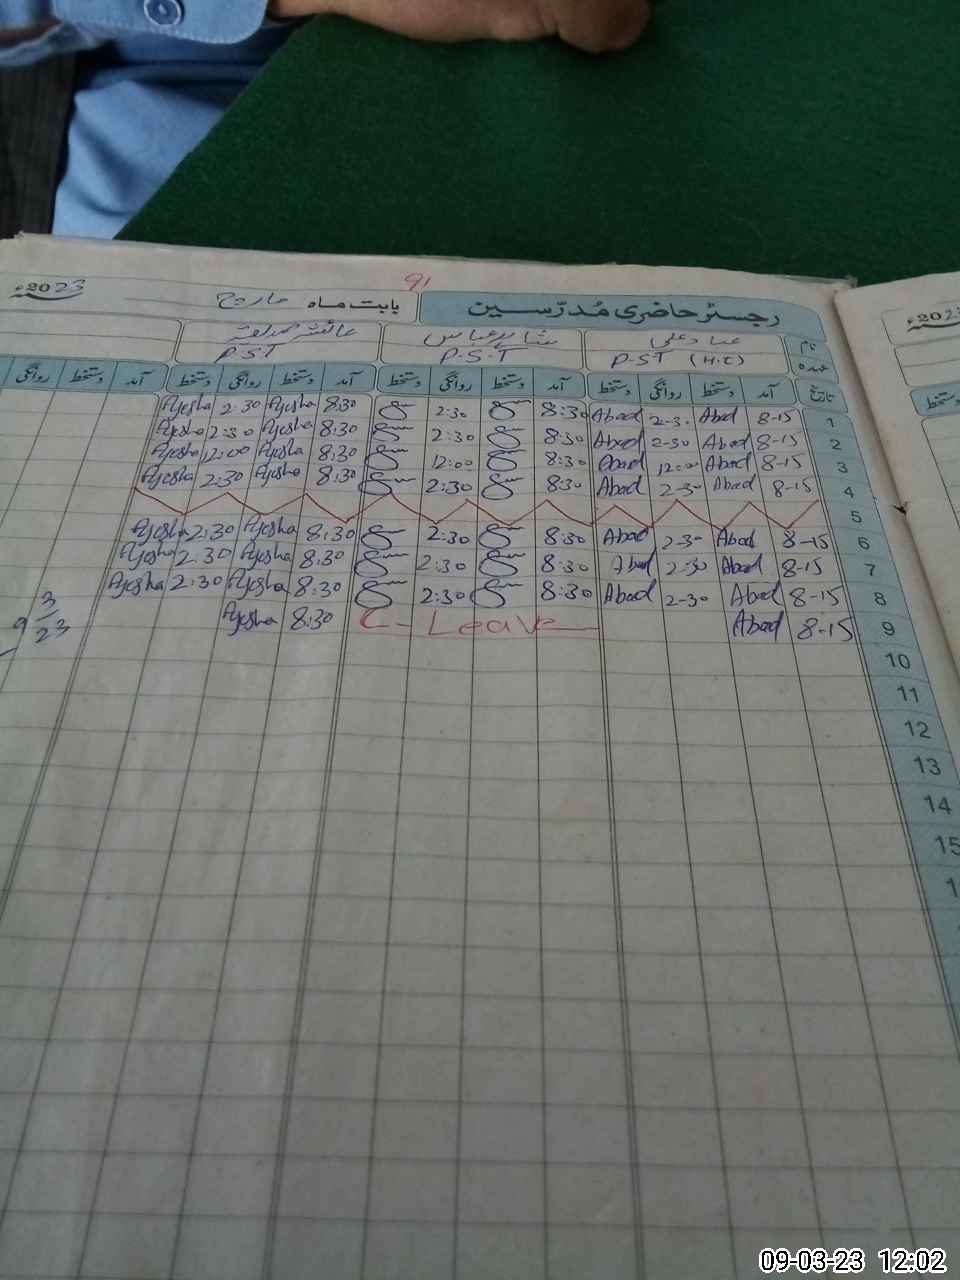 91
2023ء
بابت ماہ مارچ
رجسٹر حاضری مُدرّسین
2023
نام عباد علی شاہد عباس عائشہ صدیقہ
عہدہ P-S-T (H.T) P-S-T P-S-T
تاریخ آمد دستخط روانگی دستخط آمد دستخط روانگی دستخط آمد دستخط روانگی دستخط آمد دستخط روانگی
دستخط
1 8-15 Abad 2-30 Abad 8:30 2:30 8:30 Ayesha 2:30 Ayesha
2 8-15 Abad 2-30 Abad 8:30 2:30 8:30 Ayesha 2:30 Ayesha
3 8-15 Abad 12:00 Abad 8:30 12:00 8:30 Ayesha 12:00 Ayesha
4 8-15 Abad 2-30 Abad 8:30 2:30 8:30 Ayesha 2:30 Ayesha
5
6 8-15 Abad 2-30 Abad 8:30 2:30 8:30 Ayesha 2:30 Ayesha
7 8-15 Abad 2-30 Abad 8:30 2:30 8:30 Ayesha 2:30 Ayesha
8 8-15 Abad 2-30 Abad 8:30 2:30 8:30 Ayesha 2:30 Ayesha
9 8-15 Abad C-Leave 8:30 Ayesha
9 3/23
10
11
12
13
14
15
09-03-23 12:02